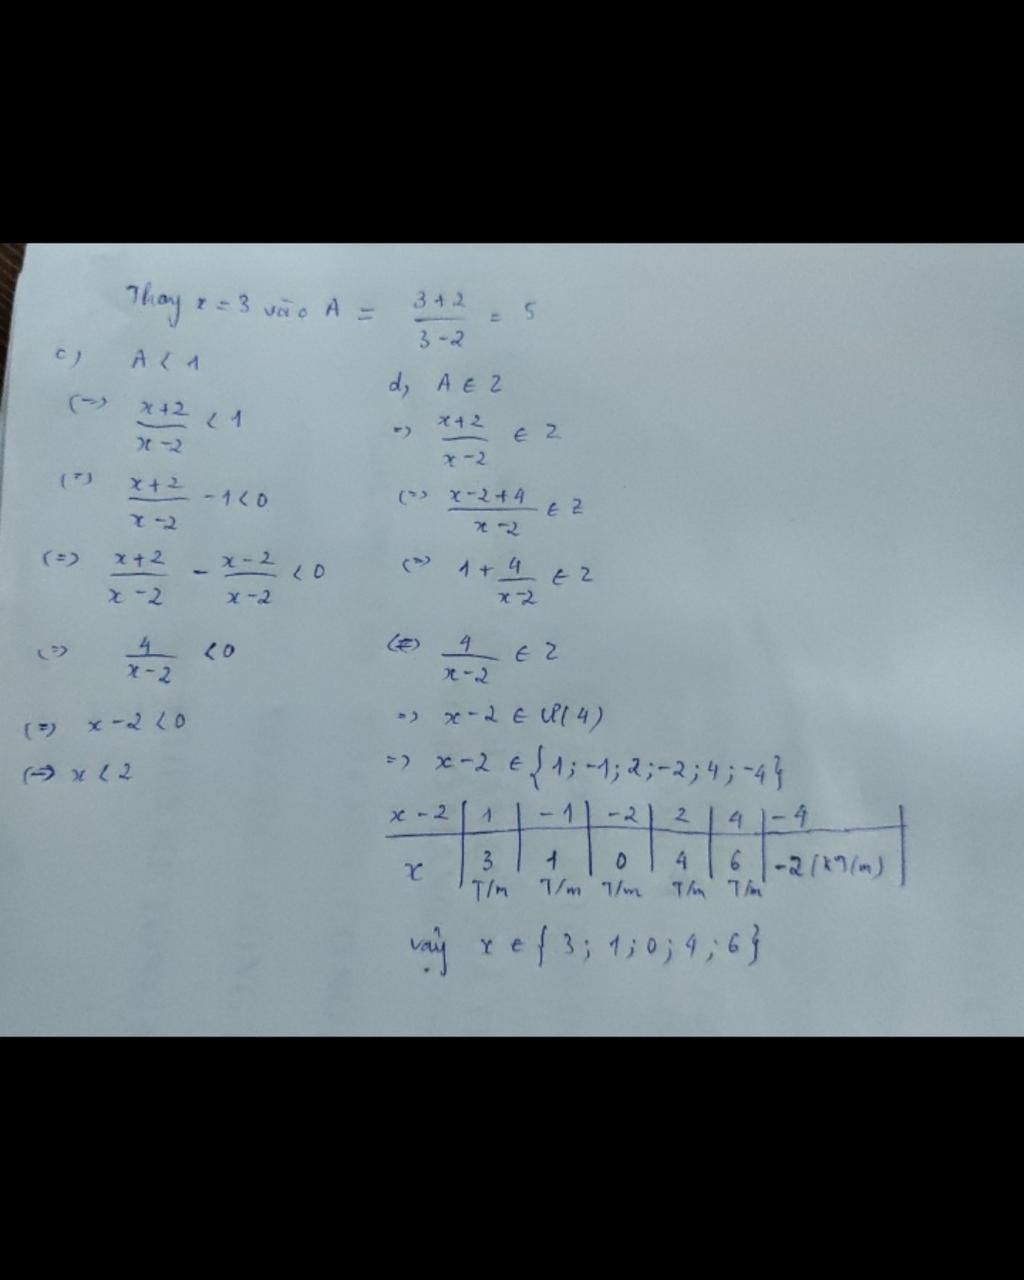 Thay x = 3 vào A = \frac{3+2}{3-2} = 5
c) A < 1
(=) \frac{x+2}{x-2} < 1
(=) \frac{x+2}{x-2} - 1 < 0
(=) \frac{x+2}{x-2} - \frac{x-2}{x-2} < 0
(=) \frac{4}{x-2} < 0
(=) x - 2 < 0
(=) x < 2
d, A ∈ Z
=) \frac{x+2}{x-2} ∈ Z
(=) \frac{x-2+4}{x-2} ∈ Z
(=) 1 + \frac{4}{x-2} ∈ Z
(=) \frac{4}{x-2} ∈ Z
=) x - 2 ∈ Ư(4)
=) x - 2 ∈ {1; -1; 2; -2; 4; -4}
x - 2 | 1 | -1 | -2 | 2 | 4 | -4
x | 3 | 1 | 0 | 4 | 6 | -2 (KT/m)
T/m T/m T/m T/m T/m
vậy x ∈ {3; 1; 0; 4; 6}